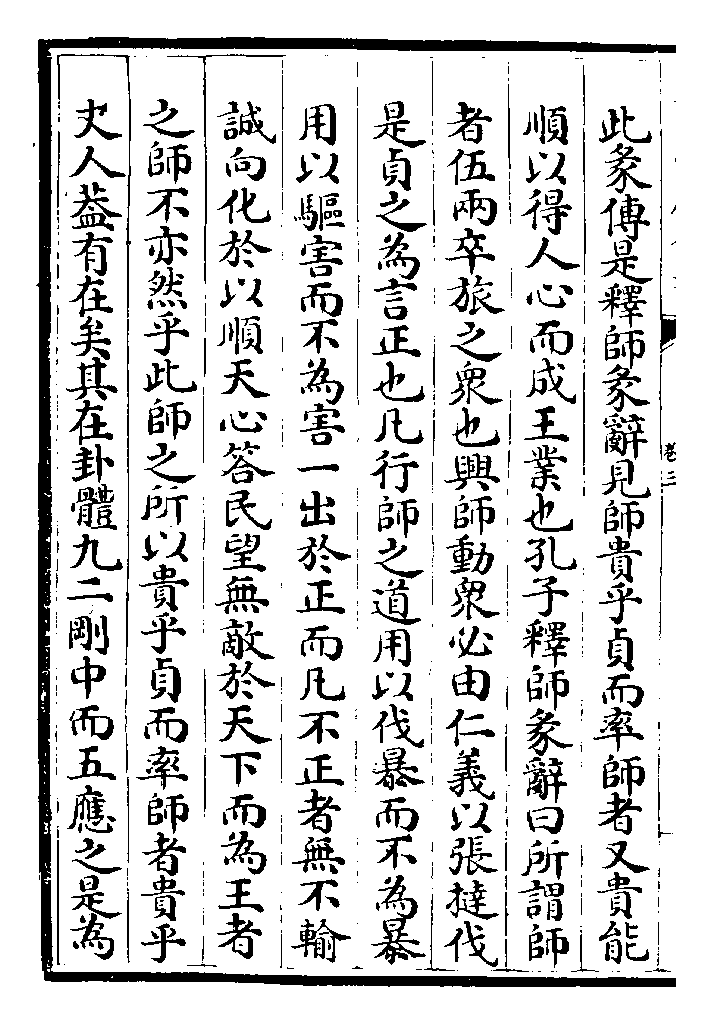 此彖傳是釋師彖辭見師貴乎貞而率師者又貴能
順以得人心而成王業也孔子釋師彖辭曰所謂師
者伍兩卒旅之衆也興師動衆必由仁義以張撻伐
是貞之為言正也凡行師之道用以伐暴而不為暴
用以驅害而不為害一出於正而凡不正者無不輸
誠向化於以順天心答民望無敵於天下而為王者
之師不亦然乎此師之所以貴乎貞而率師者貴乎
丈人葢有在矣其在卦體九二剛中而五應之是為
卷三